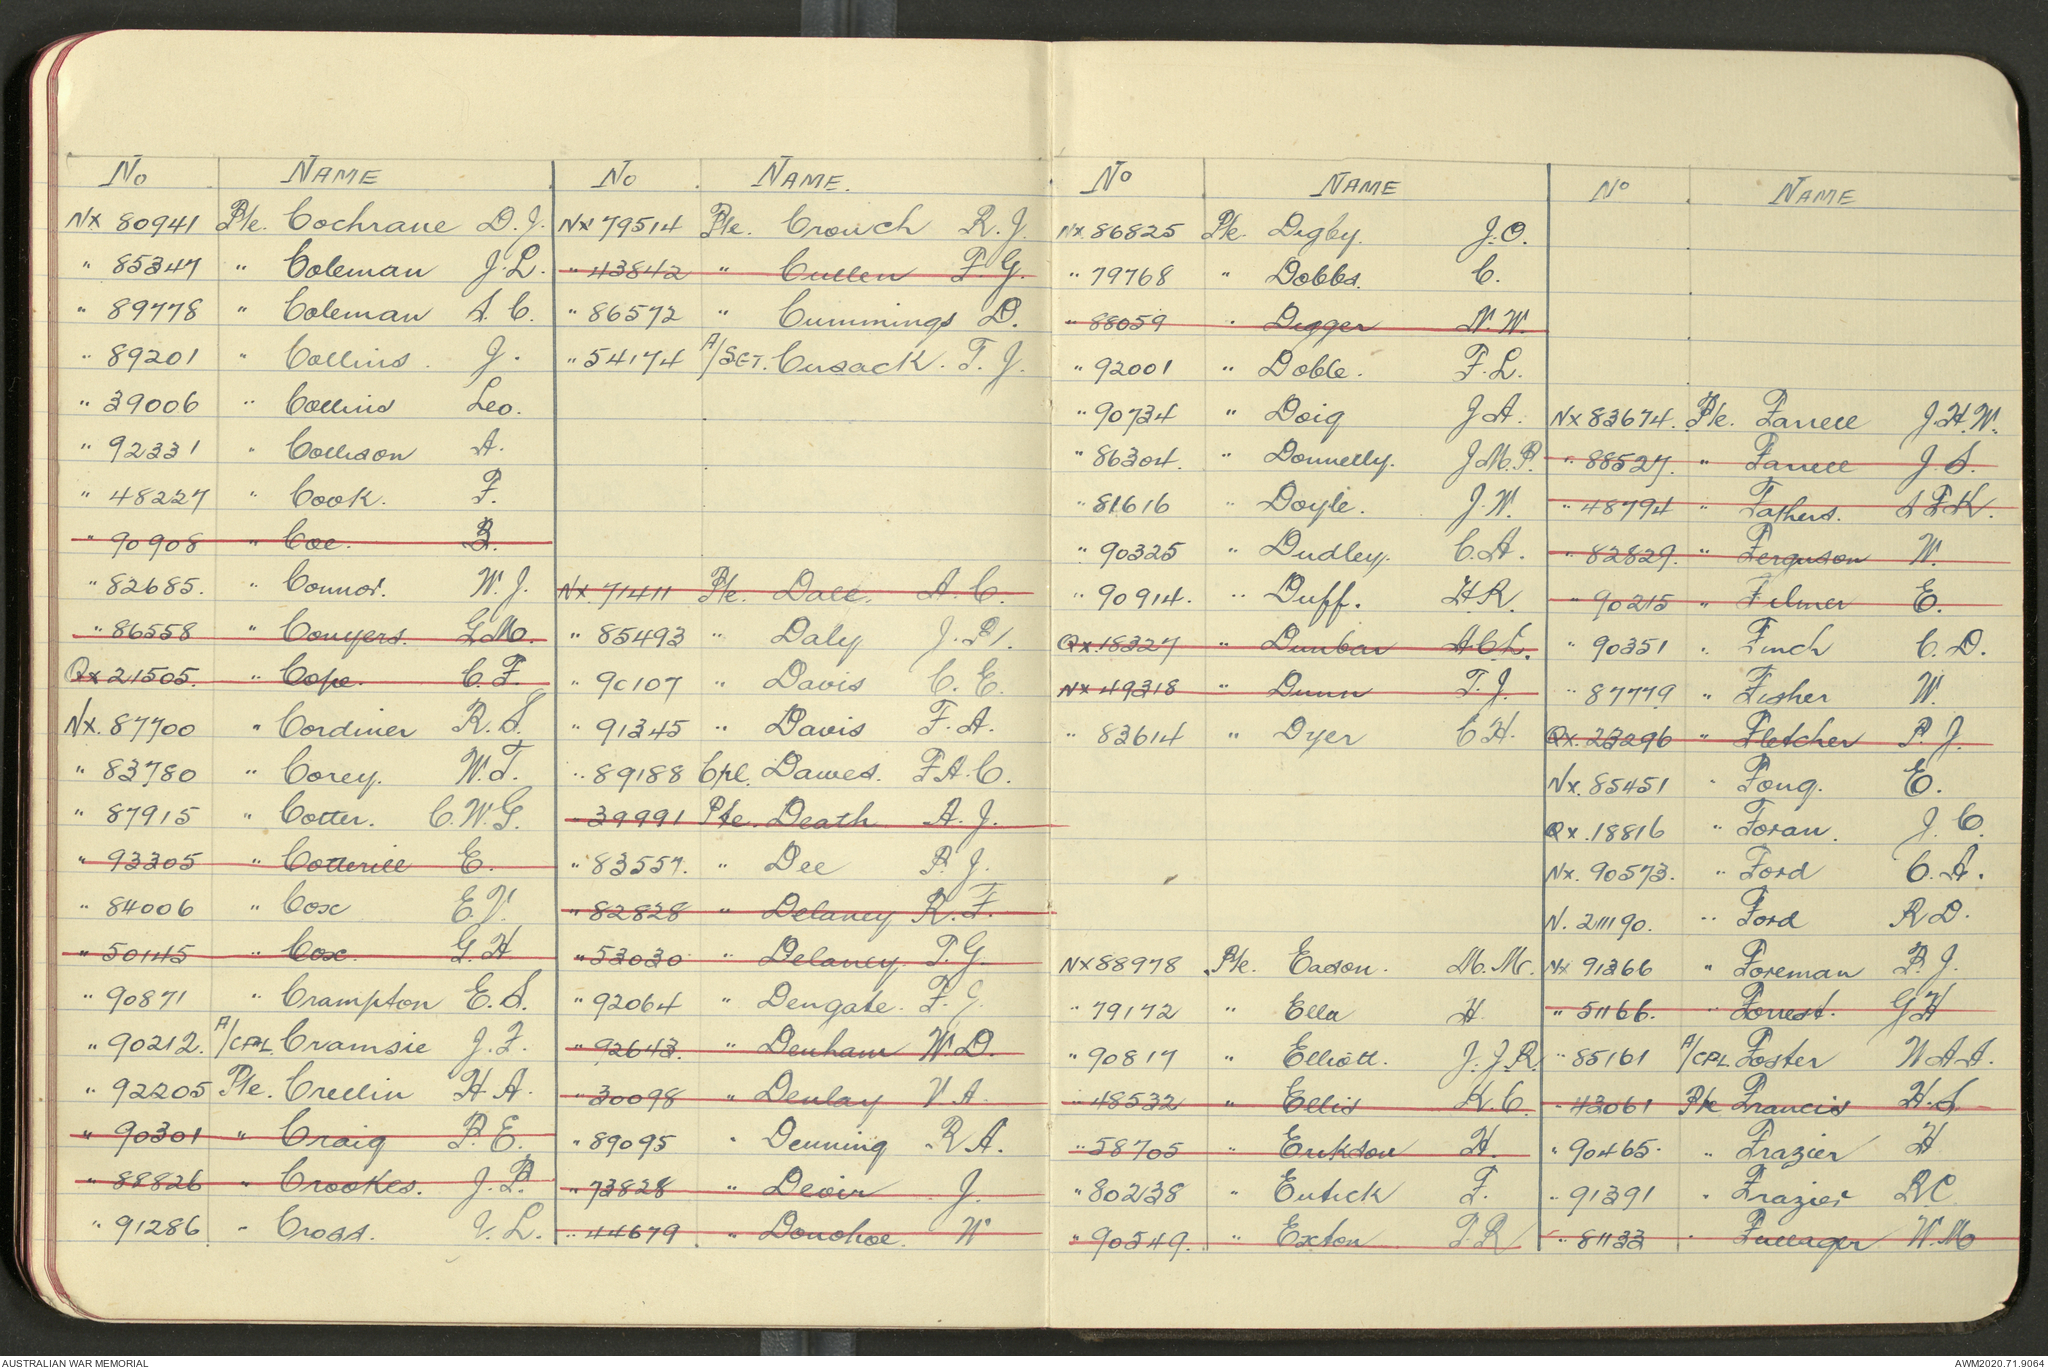 No NAME
Nx 80941 Pte. Cochrane D. J.
" 85347 " Coleman J. L.
" 89778 " Coleman A. C.
" 89201 " Collins J.
" 39006 " Collins Leo.
" 92331 " Collison A.
" 48227 " Cook. F.
" 90908 " Coe.
" 82685. " Connor. W. J.
" 86558 " Conyers. G.M.
Qx 21505. " Cope. C. F.
Nx. 87700 " Cordiner R. S.
" 83780 " Corey. W. F.
" 87915 " Cotter. C. W. G.
" 93305 " Cotterill E.
" 84006 " Cox E. V.
" 50145 " Cox. G. H
" 90871 " Crampton E. S.
" 90212. A/CPL. Cramsie J. F.
" 92205 Pte. Crellin H A.
" 90301 " Craig P. E.
" 88826 " Crookes. J. P.
" 91286 " Cross. V. L.
No NAME.
Nx 79514 Pte. Crouch R. J.
" 43842 " Cullen F. G.
" 86572 " Cummings D.
" 54174 A/SGT. Cusack. T. J.
Nx 71411 Pte. Dall. A. C.
" 85493 " Daly J. P.
" 90107 " Davis C. E.
" 91345 " Davis F. A.
" 89188 Cpl. Dawes. F A. C.
" 39991 Pte. Death A. J.
" 83557. " Dee P. J.
" 82828 " Delaney R. F.
" 53030 " Delaney. T. G.
" 92064 " Dengate. F. J.
" 92643. " Denham W. D.
" 30098 " Denlay V A.
" 89095 " Denning R A.
" 73828 " Devir J.
" 44679 " Donohoe. W
No NAME
Nx. 86825 Pte. Digby. J. O.
" 79768 " Dobbs. C.
" 88059 " Digger N. W.
" 92001 " Doble. F. L.
" 90734 " Doig J A.
" 86304. " Donnelly. J M. P.
" 81616 " Doyle. J. W.
" 90325 " Dudley. C. A.
" 90914. " Duff. H R.
Qx. 18327 " Dunbar A C L.
Nx 49318 " Dunn T. J.
" 83614 " Dyer C H.
Nx 88978 Pte. Eason. M. M.
" 79172 " Ella H
" 90817 " Elliott. J. J. R.
" 48532 " Ellis K. C.
" 58705 " Erikson H.
" 80238 " Eutick F.
" 90549. " Exton T R
No NAME
Nx 83674. Pte. Farrell J. H. W.
" 88527. " Farrell J. S.
" 48794 " Fathers. A F K.
" 82829. " Ferguson W.
" 90215 " Filmer E.
" 90351 " Finch C. D.
" 87779 " Fisher W.
Qx. 23296 " Fletcher P. J.
Nx. 85451 " Fong. E.
Qx. 18816 " Foran. J. C.
Nx. 90573. " Ford C. A.
N. 211190. " Ford R D.
Nx 91366 " Foreman P. J.
" 51166. " Forrest. G H
" 85161 A/CPL Foster W A A.
" 43061 Pte Francis H. S.
" 90465. " Frazier H
" 91391 " Frazier R C
" 81133 " Fullager W. M
AUSTRALIAN WAR MEMORIAL
AWM2020.71.9064